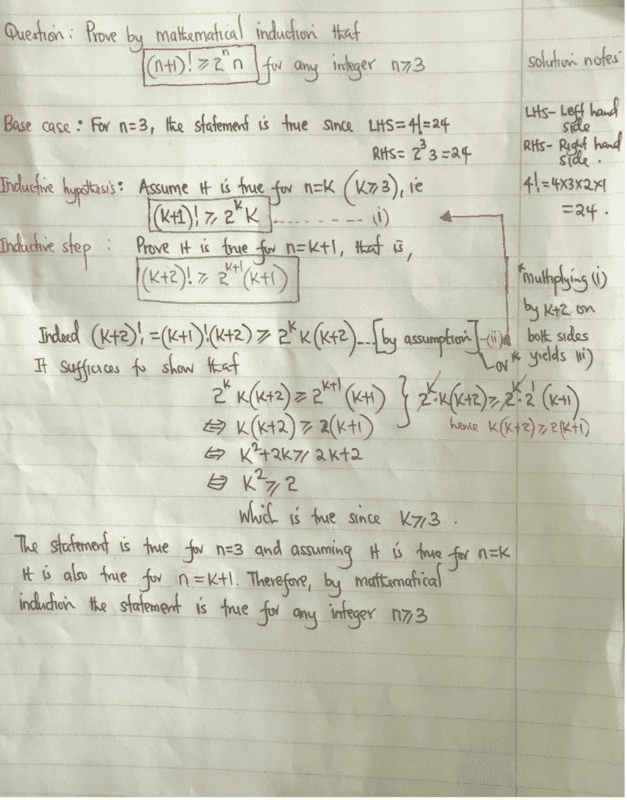 Question: Prove by mathematical induction that
(n+1)! ≥ 2^n n for any integer n≥3
solution notes
Base case: For n=3, the statement is true since LHS=4!=24
RHS= 2^3 3 =24
LHS- Left hand side
RHS- Right hand side.
4!=4×3×2×1
=24.
Inductive hypothesis: Assume it is true for n=K (K≥3), ie
(K+1)! ≥ 2^K K ......... (i)
Inductive step: Prove it is true for n=K+1, that is,
(K+2)! ≥ 2^{K+1}(K+1)
*Multiplying (i)
by K+2 on
both sides
yields (ii)
Indeed (K+2)! =(K+1)!(K+2) ≥ 2^K K(K+2)...[by assumption]-(ii)
or *
It sufficces to show that
2^K K(K+2) ≥ 2^{K+1}(K+1) } 2^K.K(K+2) ≥ 2^K.2^1(K+1)
⇔ K(K+2) ≥ 2(K+1)
hence K(K+2) ≥ 2(K+1)
⇔ K^2+2K ≥ 2K+2
⇔ K^2 ≥ 2
Which is true since K≥3.
The statement is true for n=3 and assuming it is true for n=K
it is also true for n=K+1. Therefore, by mathematical
induction the statement is true for any integer n≥3